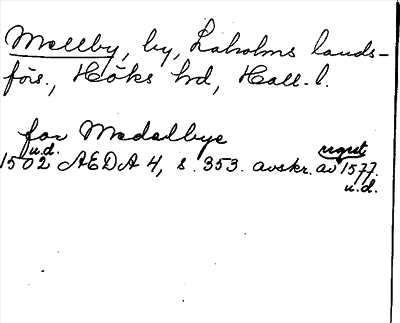 Mellby, by, Laholms lands-
förs., Höks hd, Hall. l.
for Medelbye
u.d. regest
1502 AEDA 4, s. 353. avskr. av 1577.
u.d.